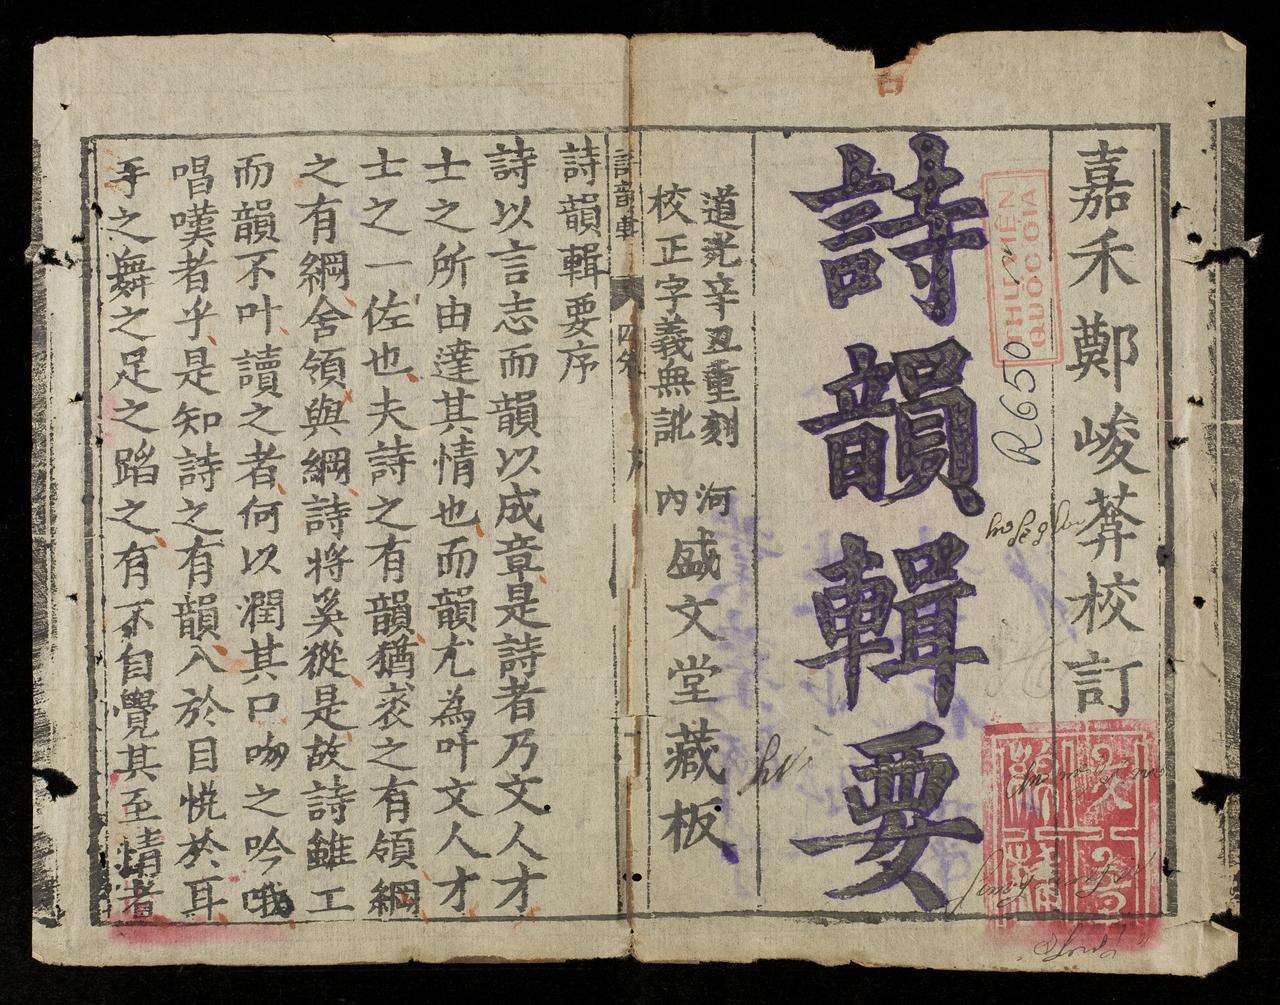 嘉禾鄭峻莽校訂
THƯ VIỆN
QUỐC GIA
R650
詩韻輯要
道光辛丑重刻
校正字義無訛
河內
盛文堂藏板
詩韻輯
四卷
序
詩韻輯要序
詩以言志而韻以成章是詩者乃文人才
士之所由達其情也而韻尤為叶文人才
士之一佐也夫詩之有韻猶裘之有領綱
之有綱舍領與綱詩將奚從是故詩雖工
而韻不叶讀之者何以潤其口吻之吟哦
唱嘆者乎是知詩之有韻入於目悅於耳
手之舞之足之蹈之有不自覺其至情者